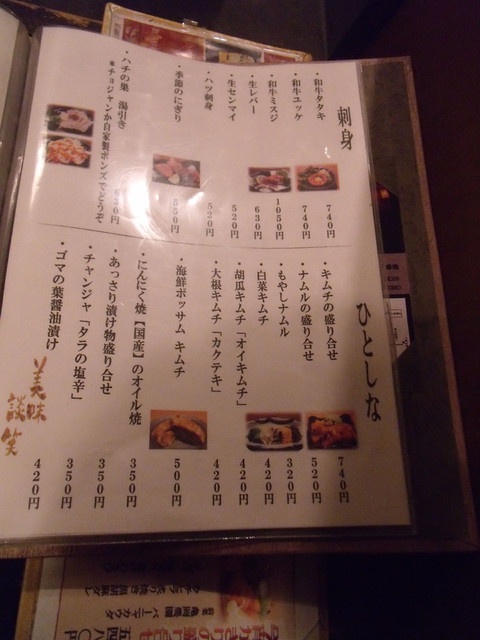 刺身
・和牛タタキ 740円
・和牛ユッケ 740円
・和牛ミスジ 1050円
・生レバー 630円
・生センマイ 520円
・ハツ刺身 520円
・季節のにぎり 550円
・ハチの巣 湯引き 530円
＊チョジャンか自家製ポンズでどうぞ
ひとしな
・キムチの盛り合せ 740円
・ナムルの盛り合せ 520円
・もやしナムル 320円
・白菜キムチ 420円
・胡瓜キムチ「オイキムチ」 420円
・大根キムチ「カクテキ」 420円
・海鮮ボッサム キムチ 500円
・にんにく焼【国産】のオイル焼 350円
・あっさり漬け物盛り合せ 350円
・チャンジャ「タラの塩辛」 350円
・ゴマの葉醤油漬け 420円
美味
談笑